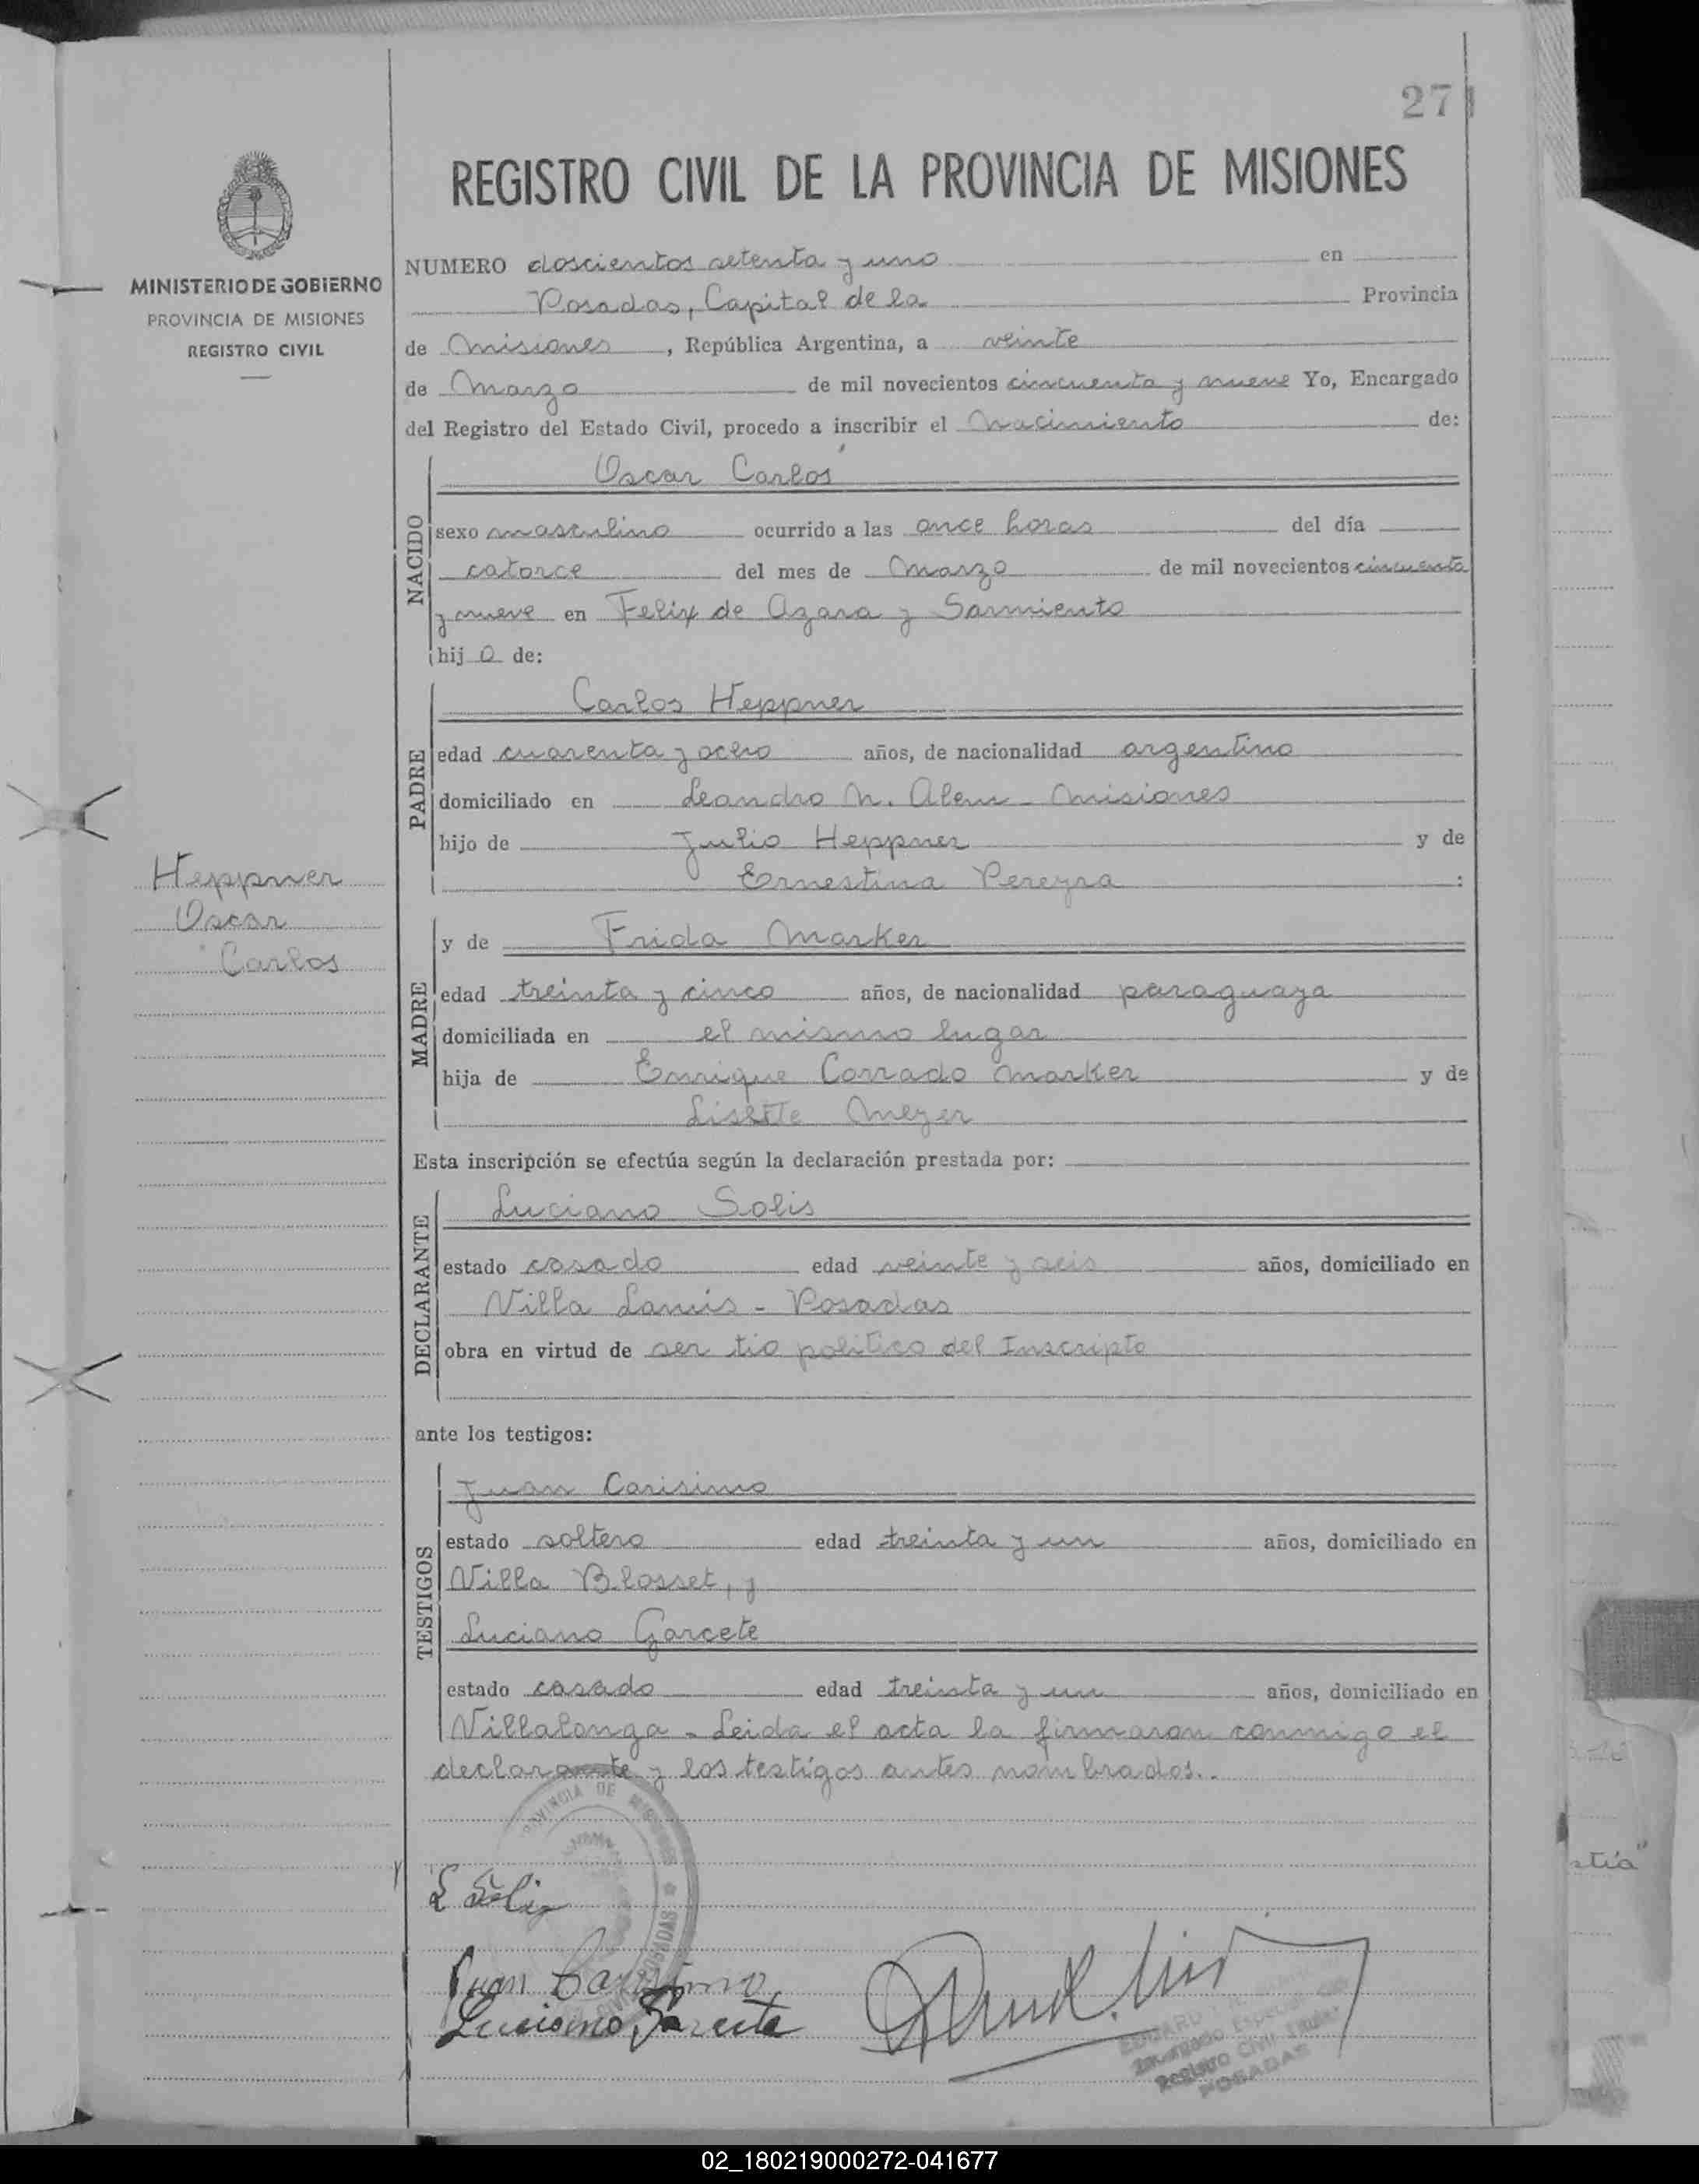 271
REGISTRO CIVIL DE LA PROVINCIA DE MISIONES
MINISTERIO DE GOBIERNO
PROVINCIA DE MISIONES
REGISTRO CIVIL
NUMERO doscientos setenta y uno en
Posadas, Capital de la Provincia
de Misiones, República Argentina, a veinte
de Marzo de mil novecientos cincuenta y nueve Yo, Encargado
del Registro del Estado Civil, procedo a inscribir el Nacimiento de:
NACIDO
Oscar Carlos
sexo masculino ocurrido a las once horas del día
catorce del mes de Marzo de mil novecientos cincuenta
y nueve en Felix de Azara y Sarmiento
hij o de:
PADRE
Carlos Heppner
edad cuarenta y ocho años, de nacionalidad argentino
domiciliado en Leandro N. Alem - Misiones
hijo de Julio Heppner y de
Ernestina Pereyra :
Heppner
Oscar
Carlos
MADRE
y de Frida Marker
edad treinta y cinco años, de nacionalidad paraguaya
domiciliada en el mismo lugar
hija de Enrique Conrado Marker y de
Lisette Meyer
Esta inscripción se efectúa según la declaración prestada por:
DECLARANTE
Luciano Solis
estado casado edad veinte y seis años, domiciliado en
Villa Lanús - Posadas
obra en virtud de ser tio politico del Inscripto
ante los testigos:
TESTIGOS
Juan Carisimo
estado soltero edad treinta y un años, domiciliado en
Villa Blosset, y
Luciano Garcete
estado casado edad treinta y un años, domiciliado en
Villalonga - Leida el acta la firmaron conmigo el
declarante y los testigos antes nombrados..
PROVINCIA DE MISIONES * POSADAS
L Solis
Juan Carisimo
Luciano Garcete
Encargado Especial
Registro Civil
POSADAS
stia"
02_180219000272-041677